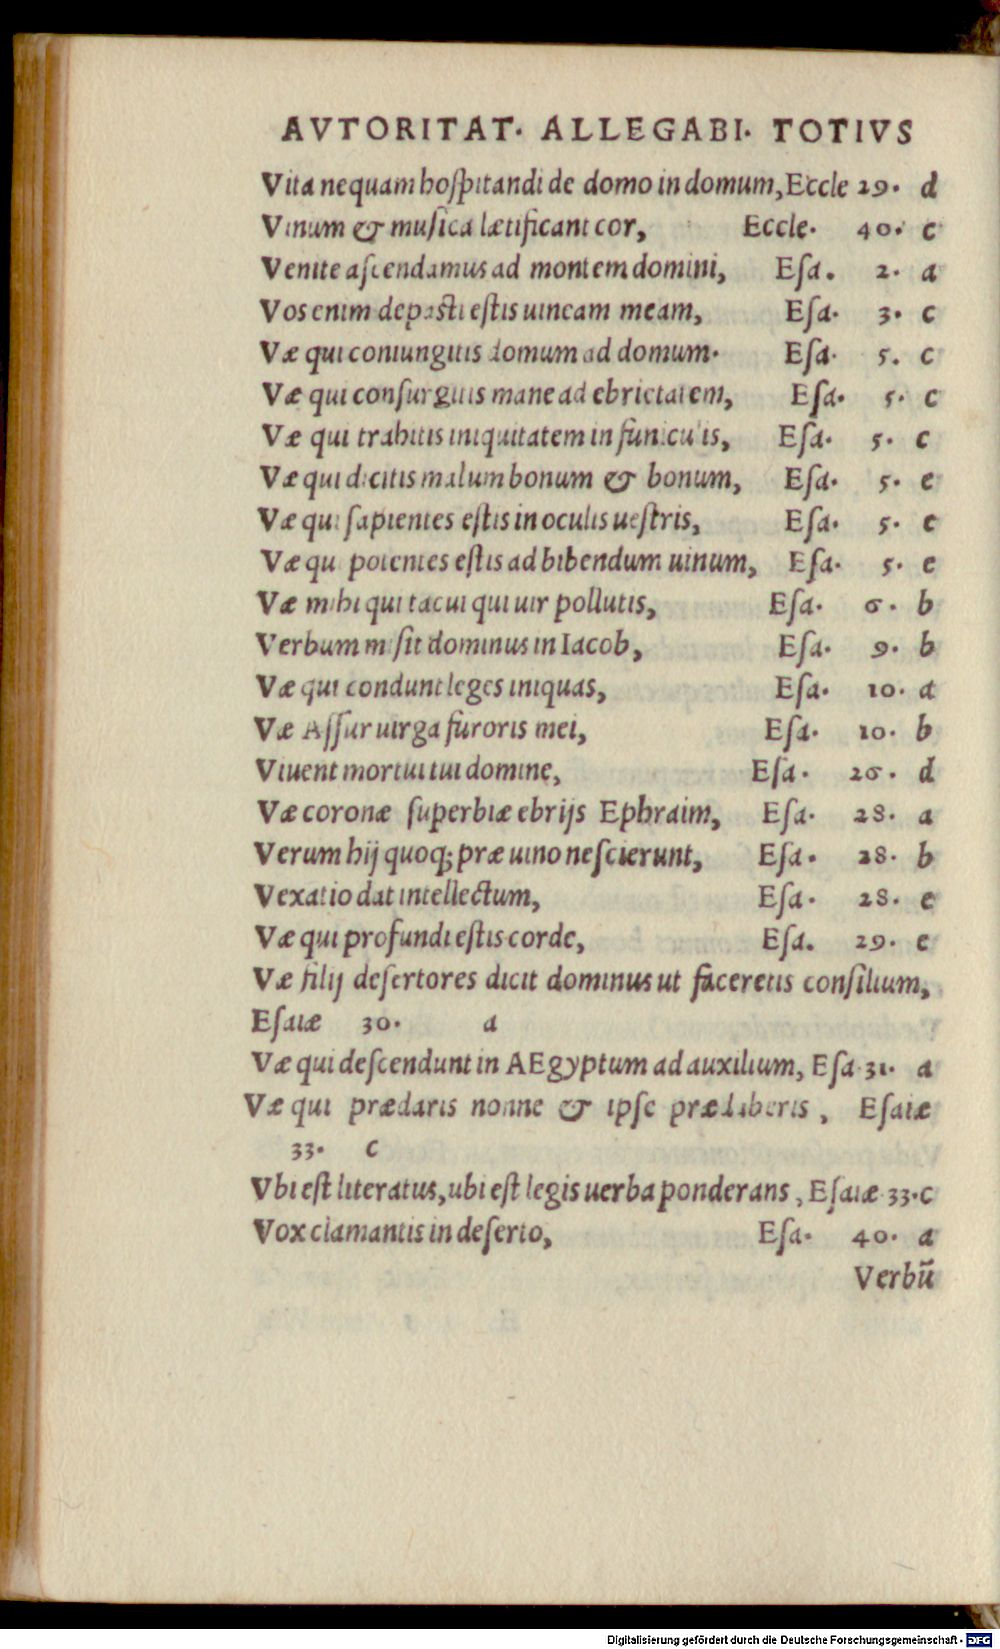 AVTORITAT· ALLEGABI· TOTIVS
Vita nequam hoſpitandi de domo in domum, Eccle 29· d
Vinum & muſica lætificant cor, Eccle· 40· c
Venite aſcendamus ad montem domini, Eſa. 2· a
Vos enim depasti eſtis uineam meam, Eſa· 3· c
Væ qui coniungitis domum ad domum· Eſa· 5. c
Væ qui conſurgitis mane ad ebrietatem, Eſa· 5· c
Væ qui trahitis iniquitatem in funiculis, Eſa· 5· c
Væ qui dicitis malum bonum & bonum, Eſa· 5· e
Væ qui ſapientes eſtis in oculis ueſtris, Eſa· 5· e
Væ qu potentes eſtis ad bibendum uinum, Eſa· 5· e
Væ mihi qui tacui qui uir pollutis, Eſa· 6· b
Verbum miſit dominus in Iacob, Eſa· 9· b
Væ qui condunt leges iniquas, Eſa· 10· a
Væ Aſſur uirga furoris mei, Eſa· 10· b
Viuent mortui tui domine, Eſa· 26· d
Væ coronæ ſuperbiæ ebrijs Ephraim, Eſa· 28· a
Verum hij quoq; præ uino neſcierunt, Eſa· 28· b
Vexatio dat intellectum, Eſa· 28· e
Væ qui profundi eſtis corde, Eſa. 29· e
Væ filij deſertores dicit dominus ut faceretis conſilium,
Eſaiæ 30· a
Væ qui deſcendunt in AEgyptum ad auxilium, Eſa· 31· a
Væ qui prædaris nonne & ipſe prædaberis, Eſaiæ
33· c
Vbi eſt literatus, ubi eſt legis uerba ponderans, Eſaiæ 33·c
Vox clamantis in deſerto, Eſa· 40· a
Verbũ
Digitalisierung gefördert durch die Deutsche Forschungsgemeinschaft - DFG